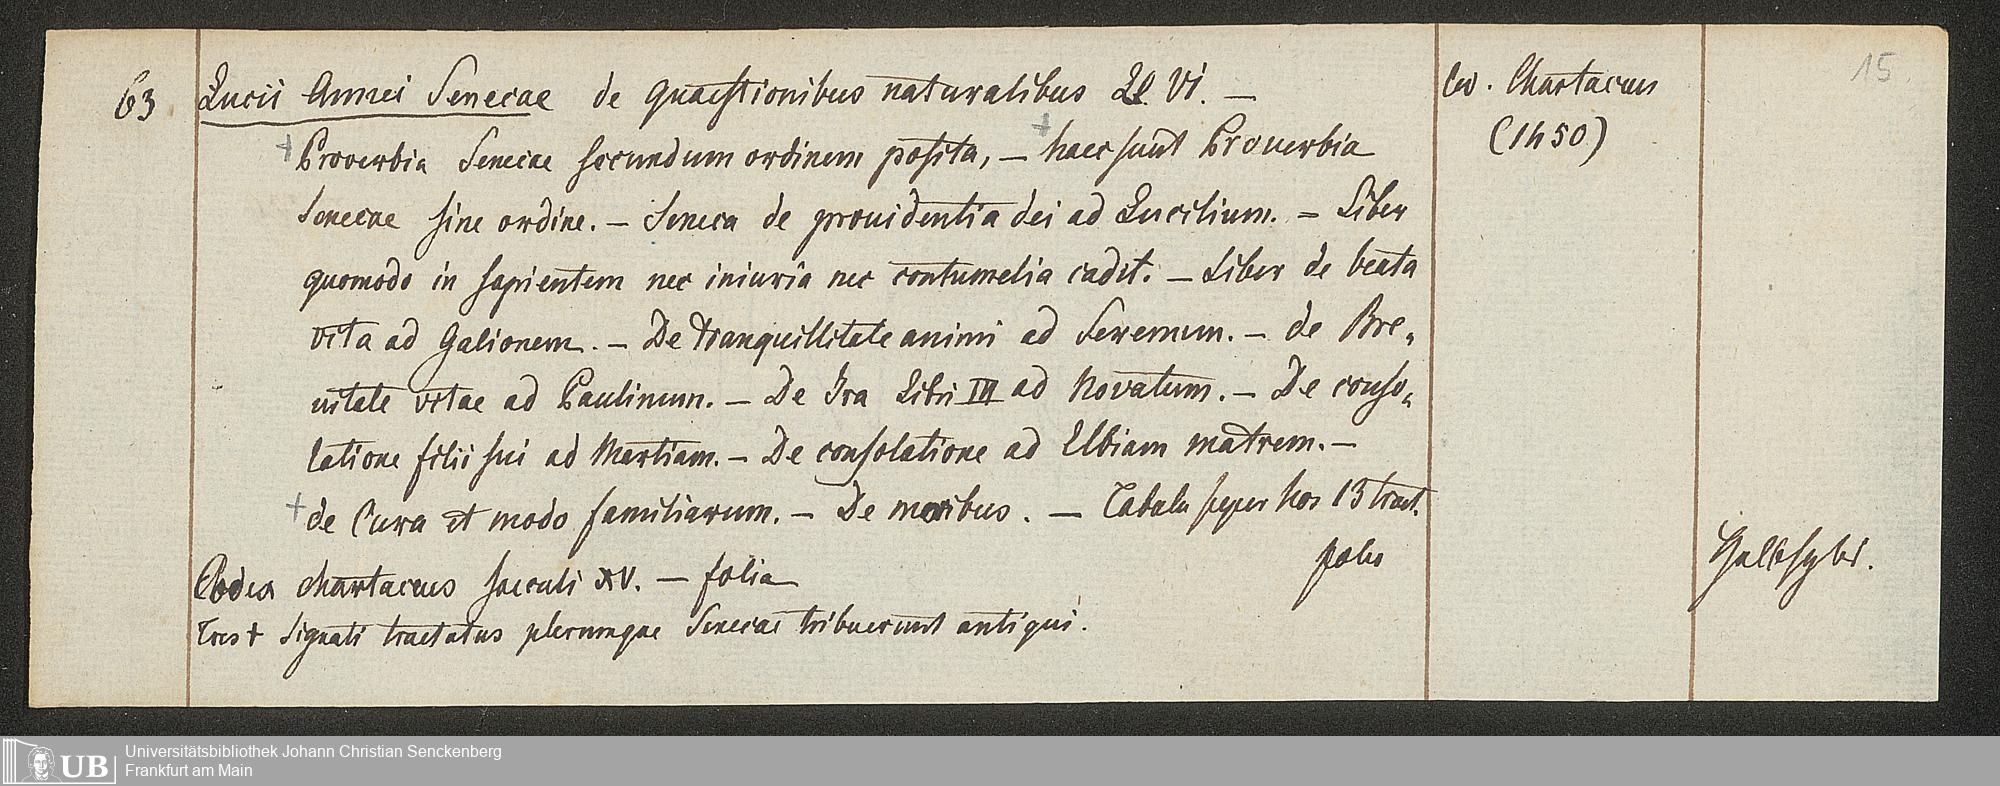 15
63 Lucii Annei Senecae de quaestionibus naturalibus Ll. VI. —
Cod. Chartaceus
(1450)
+ Proverbia Senecae secundum ordinem posita, — + haec sunt Prouerbia
Senecae sine ordine. — Seneca de prouidentia dei ad Lucilium. — Liber
quomodo in sapientem nec iniuria nec contumelia cadit. — Liber de beata
vita ad Galionem. — De tranquillitate animi ad Serenum. — de Bre-
uitate vitae ad Paulinum. — De Ira Libri III ad Novatum. — De conso-
latione filii sui ad Martiam. — De consolatione ad Elbiam matrem. —
+ de Cura et modo familiarum. — De moribus. — Tabula super hos 13 tract.
Codex chartaceus saeculi XV. — folia
Tres + signati tractatus plerumque Senecae tribuerunt antiqui.
Universitätsbibliothek Johann Christian Senckenberg
UB Frankfurt am Main